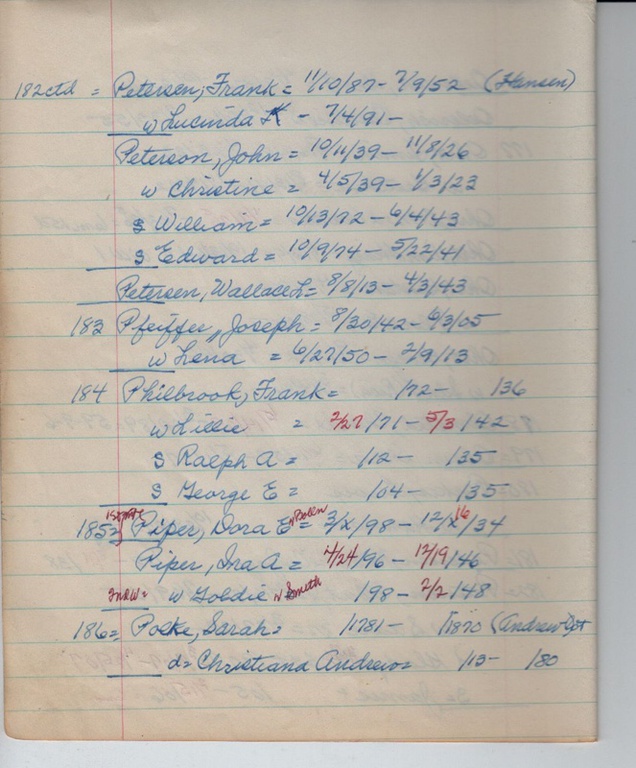 182ctd = Petersen, Frank = 11/10/87 - 7/9/52 (Hansen)
w Lucinda K - 7/4/91 -
Peterson, John = 10/11/39 - 11/8/26
w Christine = 4/5/39 - 1/3/23
s William = 10/13/72 - 6/4/43
s Edward = 10/9/74 - 5/22/41
Petersen, Wallace L = 8/8/13 - 4/3/43
183 Pfeiffer, Joseph = 8/30/42 - 6/3/05
w Lena = 6/27/50 - 2/9/13
184 Philbrook, Frank = /72 - /36
w Lillie = 2/27/71 - 5/3/42
s Ralph A = /12 - /35
s George E = /04 - /35
1st wife n Bolen
185= Piper, Dora E = 3/x/98 - 12/16/34
Piper, Ira A = 4/24/96 - 12/19/46
2nd w = w Goldie n Smith 198 - 2/2/48
186= Polke, Sarah = /1781 - /1870 (Andrew Lot
d = Christiand Andrew = /13 - /80